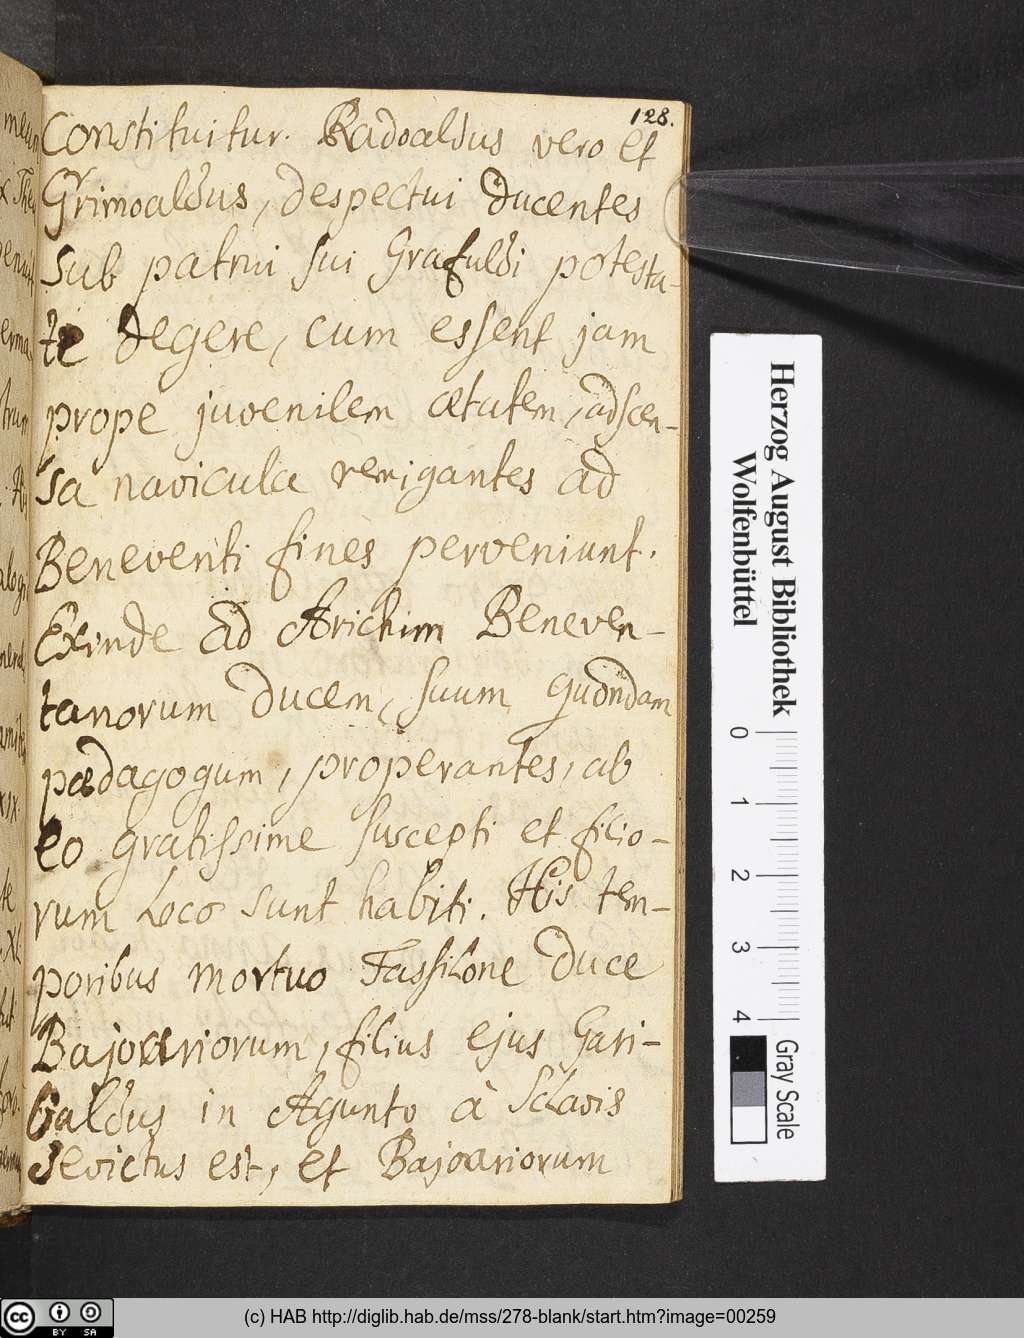 128.
Constituitur. Radoaldus vero et
Grimoaldus, despectui ducentes
sub patrui sui Grafuldi potesta-
te degere, cum essent jam
prope juvenilem ætatem, adscen-
sa navicula remigantes ad
Beneventi fines perveniunt.
Exinde ad Arichim Beneven-
tanorum ducem, suum quondam
pædagogum, properantes, ab
eo gratissime suscepti et filio-
rum loco sunt habiti. His tem-
poribus mortuo Tassilone duce
Bajoariorum, filius ejus Gari-
baldus in Agunto à Sclavis
devictus est, et Bajoariorum
Herzog August Bibliothek
Wolfenbüttel
0 1 2 3 4
Gray Scale
cc BY SA
(c) HAB http://diglib.hab.de/mss/278-blank/start.htm?image=00259